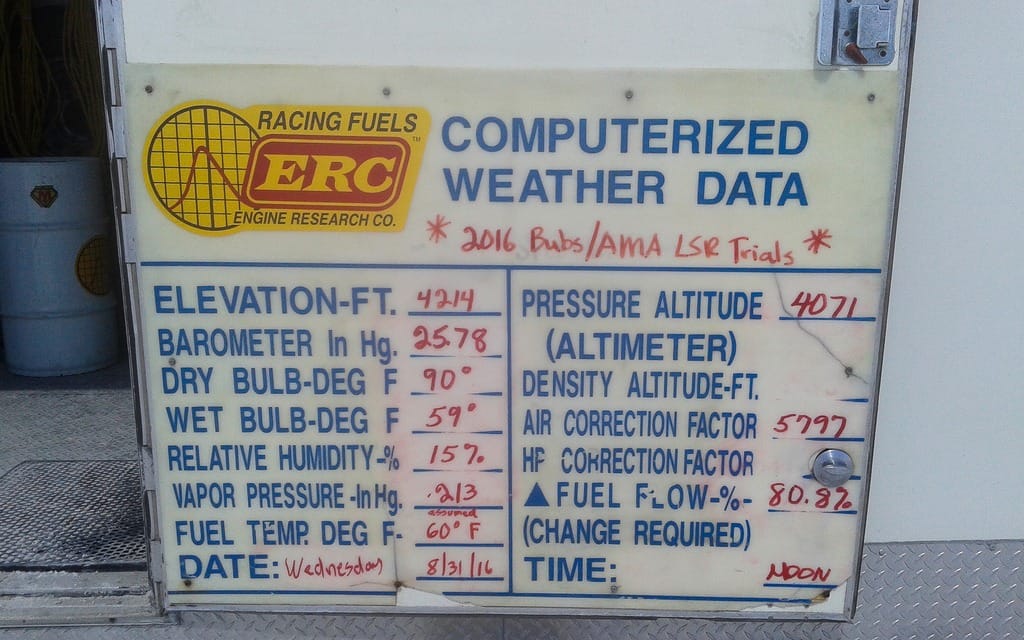 RACING FUELS
ERC™
ENGINE RESEARCH CO.
COMPUTERIZED
WEATHER DATA
* 2016 Bubs/AMA LSR Trials *
ELEVATION-FT. 4214
BAROMETER In Hg. 25.78
DRY BULB-DEG F 90°
WET BULB-DEG F 59°
RELATIVE HUMIDITY-% 15%
VAPOR PRESSURE-In Hg. .213
assumed
FUEL TEMP. DEG F- 60° F
DATE: Wednesday 8/31/16
PRESSURE ALTITUDE 4071
(ALTIMETER)
DENSITY ALTITUDE-FT.
AIR CORRECTION FACTOR 5797
HP CORRECTION FACTOR
▲ FUEL FLOW-%- 80.8%
(CHANGE REQUIRED)
TIME: NOON